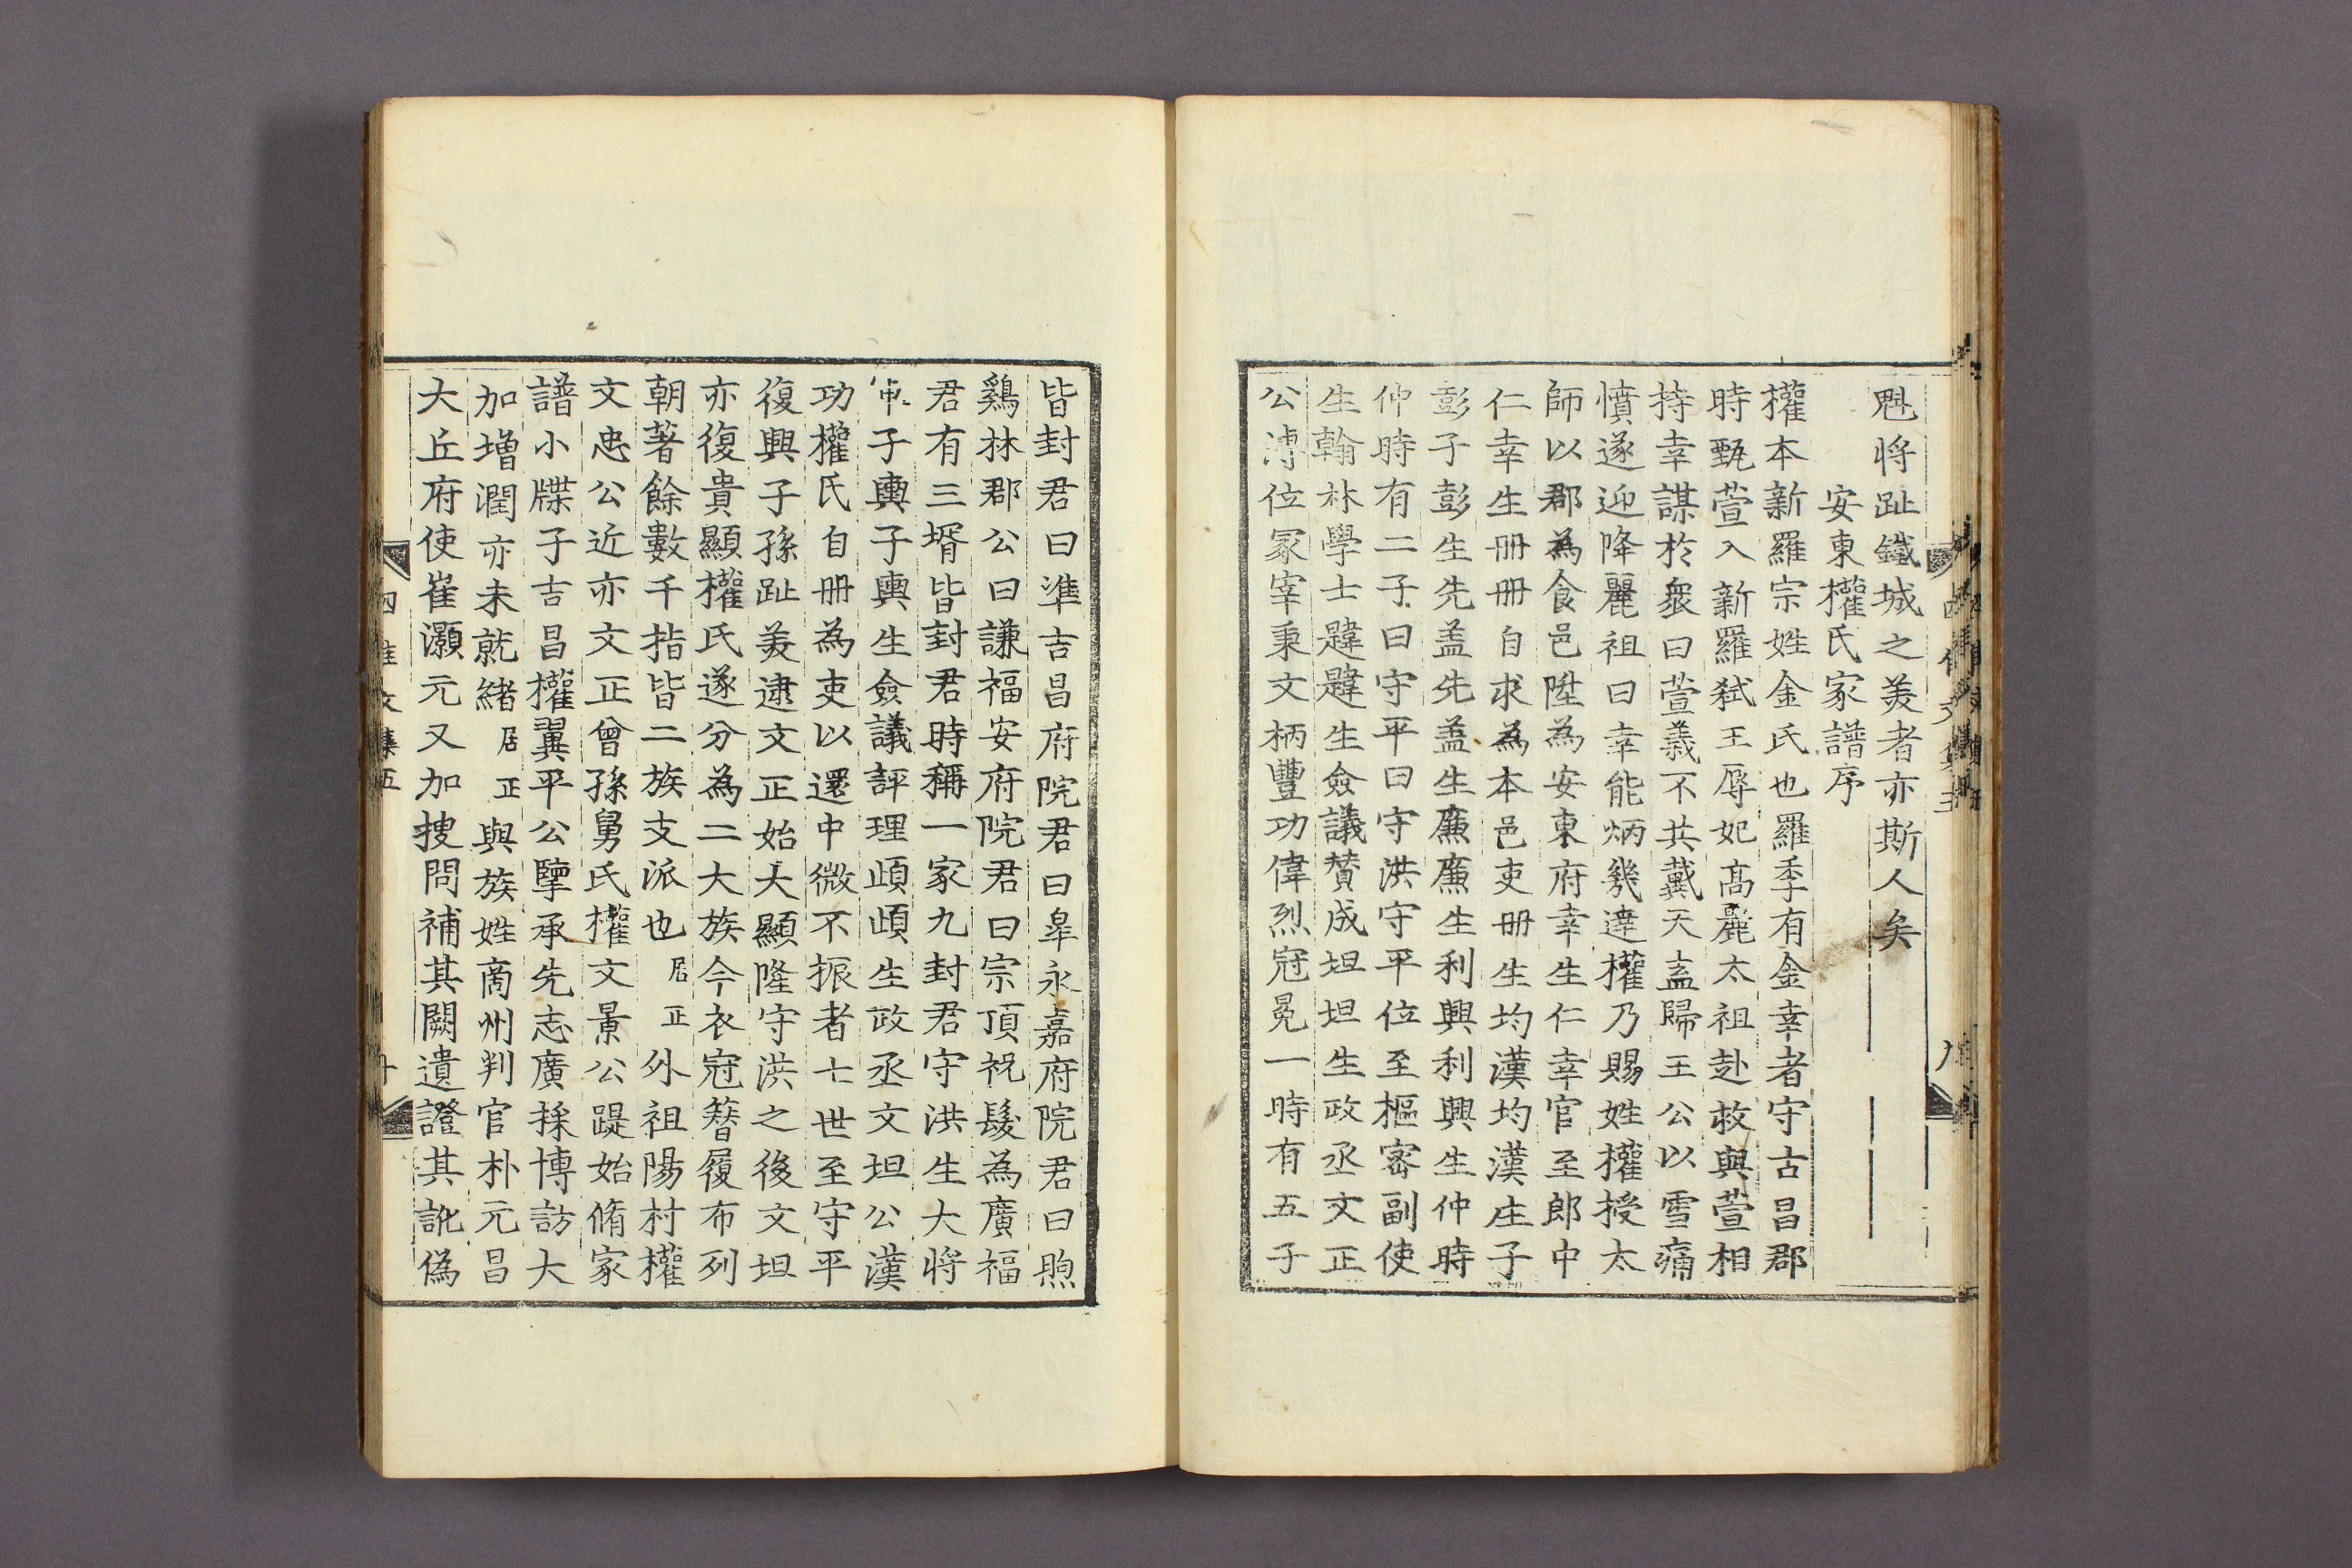 魁將趾鐵城之美者亦斯人矣
安東權氏家譜序
權本新羅宗姓金氏也羅季有金幸者守古昌郡
時甄萱入新羅弑王辱妃高麗太祖赴救與萱相
持幸謀於衆曰萱義不共戴天盍歸王公以雪痛
憤遂迎降麗祖曰幸能炳幾達權乃賜姓權授太
師以郡為食邑陞為安東府幸生仁幸官至郎中
仁幸生冊冊自求為本邑吏冊生均漢均漢生子
彭子彭生先盖先盖生廉廉生利興利興生仲時
仲時有二子曰守平曰守洪守平位至樞密副使
生翰林學士韙韙生僉議賛成㫜㫜生政丞文正
公溥位冡宰秉文柄豐功偉烈冠冕一時有五子
皆封君曰準吉昌府院君曰皐永嘉府院君曰煦
鷄林郡公曰謙福安府院君曰宗頂祝髮為廣福
君有三壻皆封君時稱一家九封君守洪生大將
子輿子輿生僉議評理䪴䪴生政丞文坦公漢
功權氏自冊為吏以還中微不振者七世至守平
復興子孫趾美逮文正始大顯隆守洪之後文坦
亦復貴顯權氏遂分為二大族今衣冠簪履布列
朝著餘數千指皆二族支派也居正外祖陽村權
文忠公近亦文正曾孫舅氏權文景公踶始脩家
譜小牒子吉昌權翼平公擥承先志廣採博訪大
加增潤亦未就緒居正與族姓尙州判官朴元昌
大丘府使崔灝元又加搜問補其闕遺證其訛偽
四佳文集五